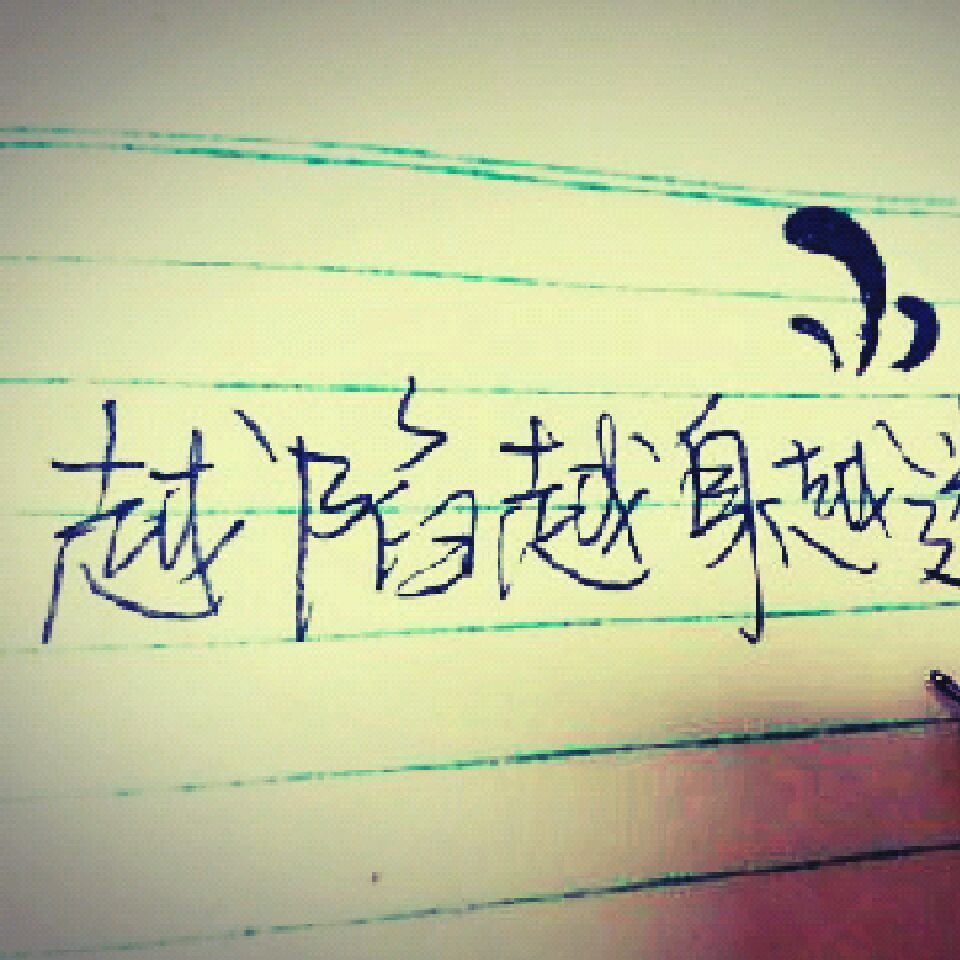 越陷越身越